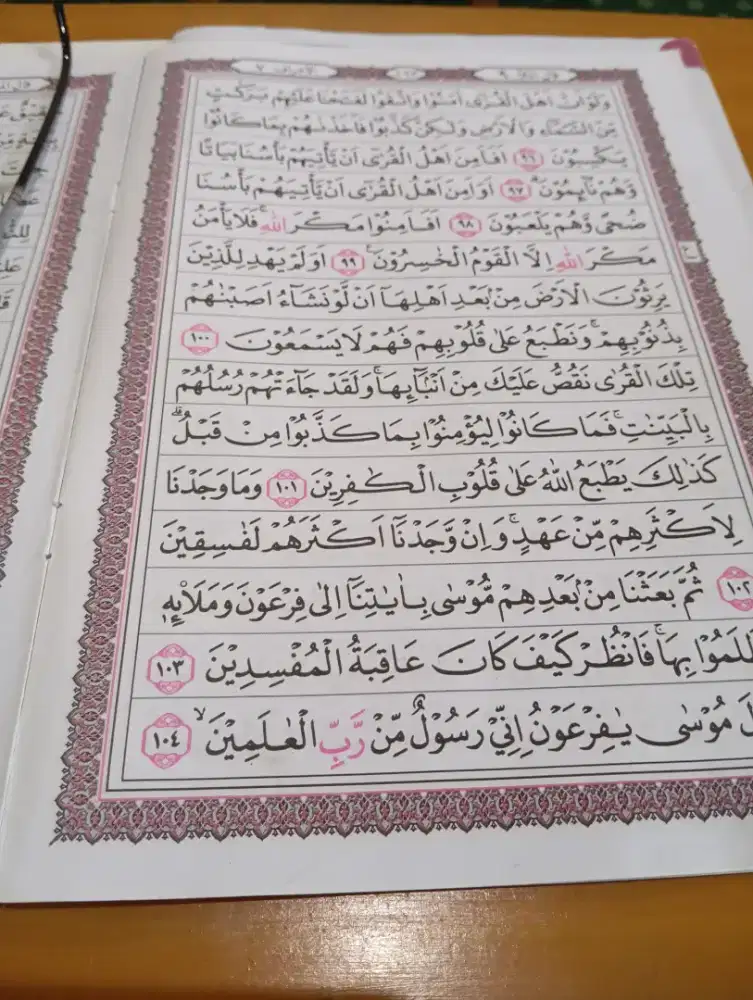 الاعراف ٧
وَلَوْ اَنَّ اَهْلَ الْقُرٰٓى اٰمَنُوْا وَاتَّقَوْا لَفَتَحْنَا عَلَيْهِمْ بَرَكٰتٍ
مِّنَ السَّمَاۤءِ وَالْاَرْضِ وَلٰكِنْ كَذَّبُوْا فَاَخَذْنٰهُمْ بِمَا كَانُوْا
يَكْسِبُوْنَ ٩٦ اَفَاَمِنَ اَهْلُ الْقُرٰٓى اَنْ يَّأْتِيَهُمْ بَأْسُنَا بَيَاتًا
وَّهُمْ نَاۤىِٕمُوْنَ ٩٧ اَوَاَمِنَ اَهْلُ الْقُرٰٓى اَنْ يَّأْتِيَهُمْ بَأْسُنَا
ضُحًى وَّهُمْ يَلْعَبُوْنَ ٩٨ اَفَاَمِنُوْا مَكْرَ اللّٰهِ ۚ فَلَا يَأْمَنُ
مَكْرَ اللّٰهِ اِلَّا الْقَوْمُ الْخٰسِرُوْنَ ٩٩ اَوَلَمْ يَهْدِ لِلَّذِيْنَ
يَرِثُوْنَ الْاَرْضَ مِنْۢ بَعْدِ اَهْلِهَآ اَنْ لَّوْ نَشَاۤءُ اَصَبْنٰهُمْ
بِذُنُوْبِهِمْ ۚ وَنَطْبَعُ عَلٰى قُلُوْبِهِمْ فَهُمْ لَا يَسْمَعُوْنَ ١٠٠
تِلْكَ الْقُرٰى نَقُصُّ عَلَيْكَ مِنْ اَنْۢبَاۤىِٕهَا ۚ وَلَقَدْ جَاۤءَتْهُمْ رُسُلُهُمْ
بِالْبَيِّنٰتِ ۚ فَمَا كَانُوْا لِيُؤْمِنُوْا بِمَا كَذَّبُوْا مِنْ قَبْلُ ۗ
كَذٰلِكَ يَطْبَعُ اللّٰهُ عَلٰى قُلُوْبِ الْكٰفِرِيْنَ ١٠١ وَمَا وَجَدْنَا
لِاَكْثَرِهِمْ مِّنْ عَهْدٍ ۚ وَاِنْ وَّجَدْنَآ اَكْثَرَهُمْ لَفٰسِقِيْنَ
١٠٢ ثُمَّ بَعَثْنَا مِنْۢ بَعْدِهِمْ مُّوْسٰى بِاٰيٰتِنَآ اِلٰى فِرْعَوْنَ وَمَلَا۟ىِٕهٖ
لَمُوْا بِهَا ۚ فَانْظُرْ كَيْفَ كَانَ عَاقِبَةُ الْمُفْسِدِيْنَ ١٠٣
لَ مُوْسٰى يٰفِرْعَوْنُ اِنِّيْ رَسُوْلٌ مِّنْ رَّبِّ الْعٰلَمِيْنَ ۙ ١٠٤